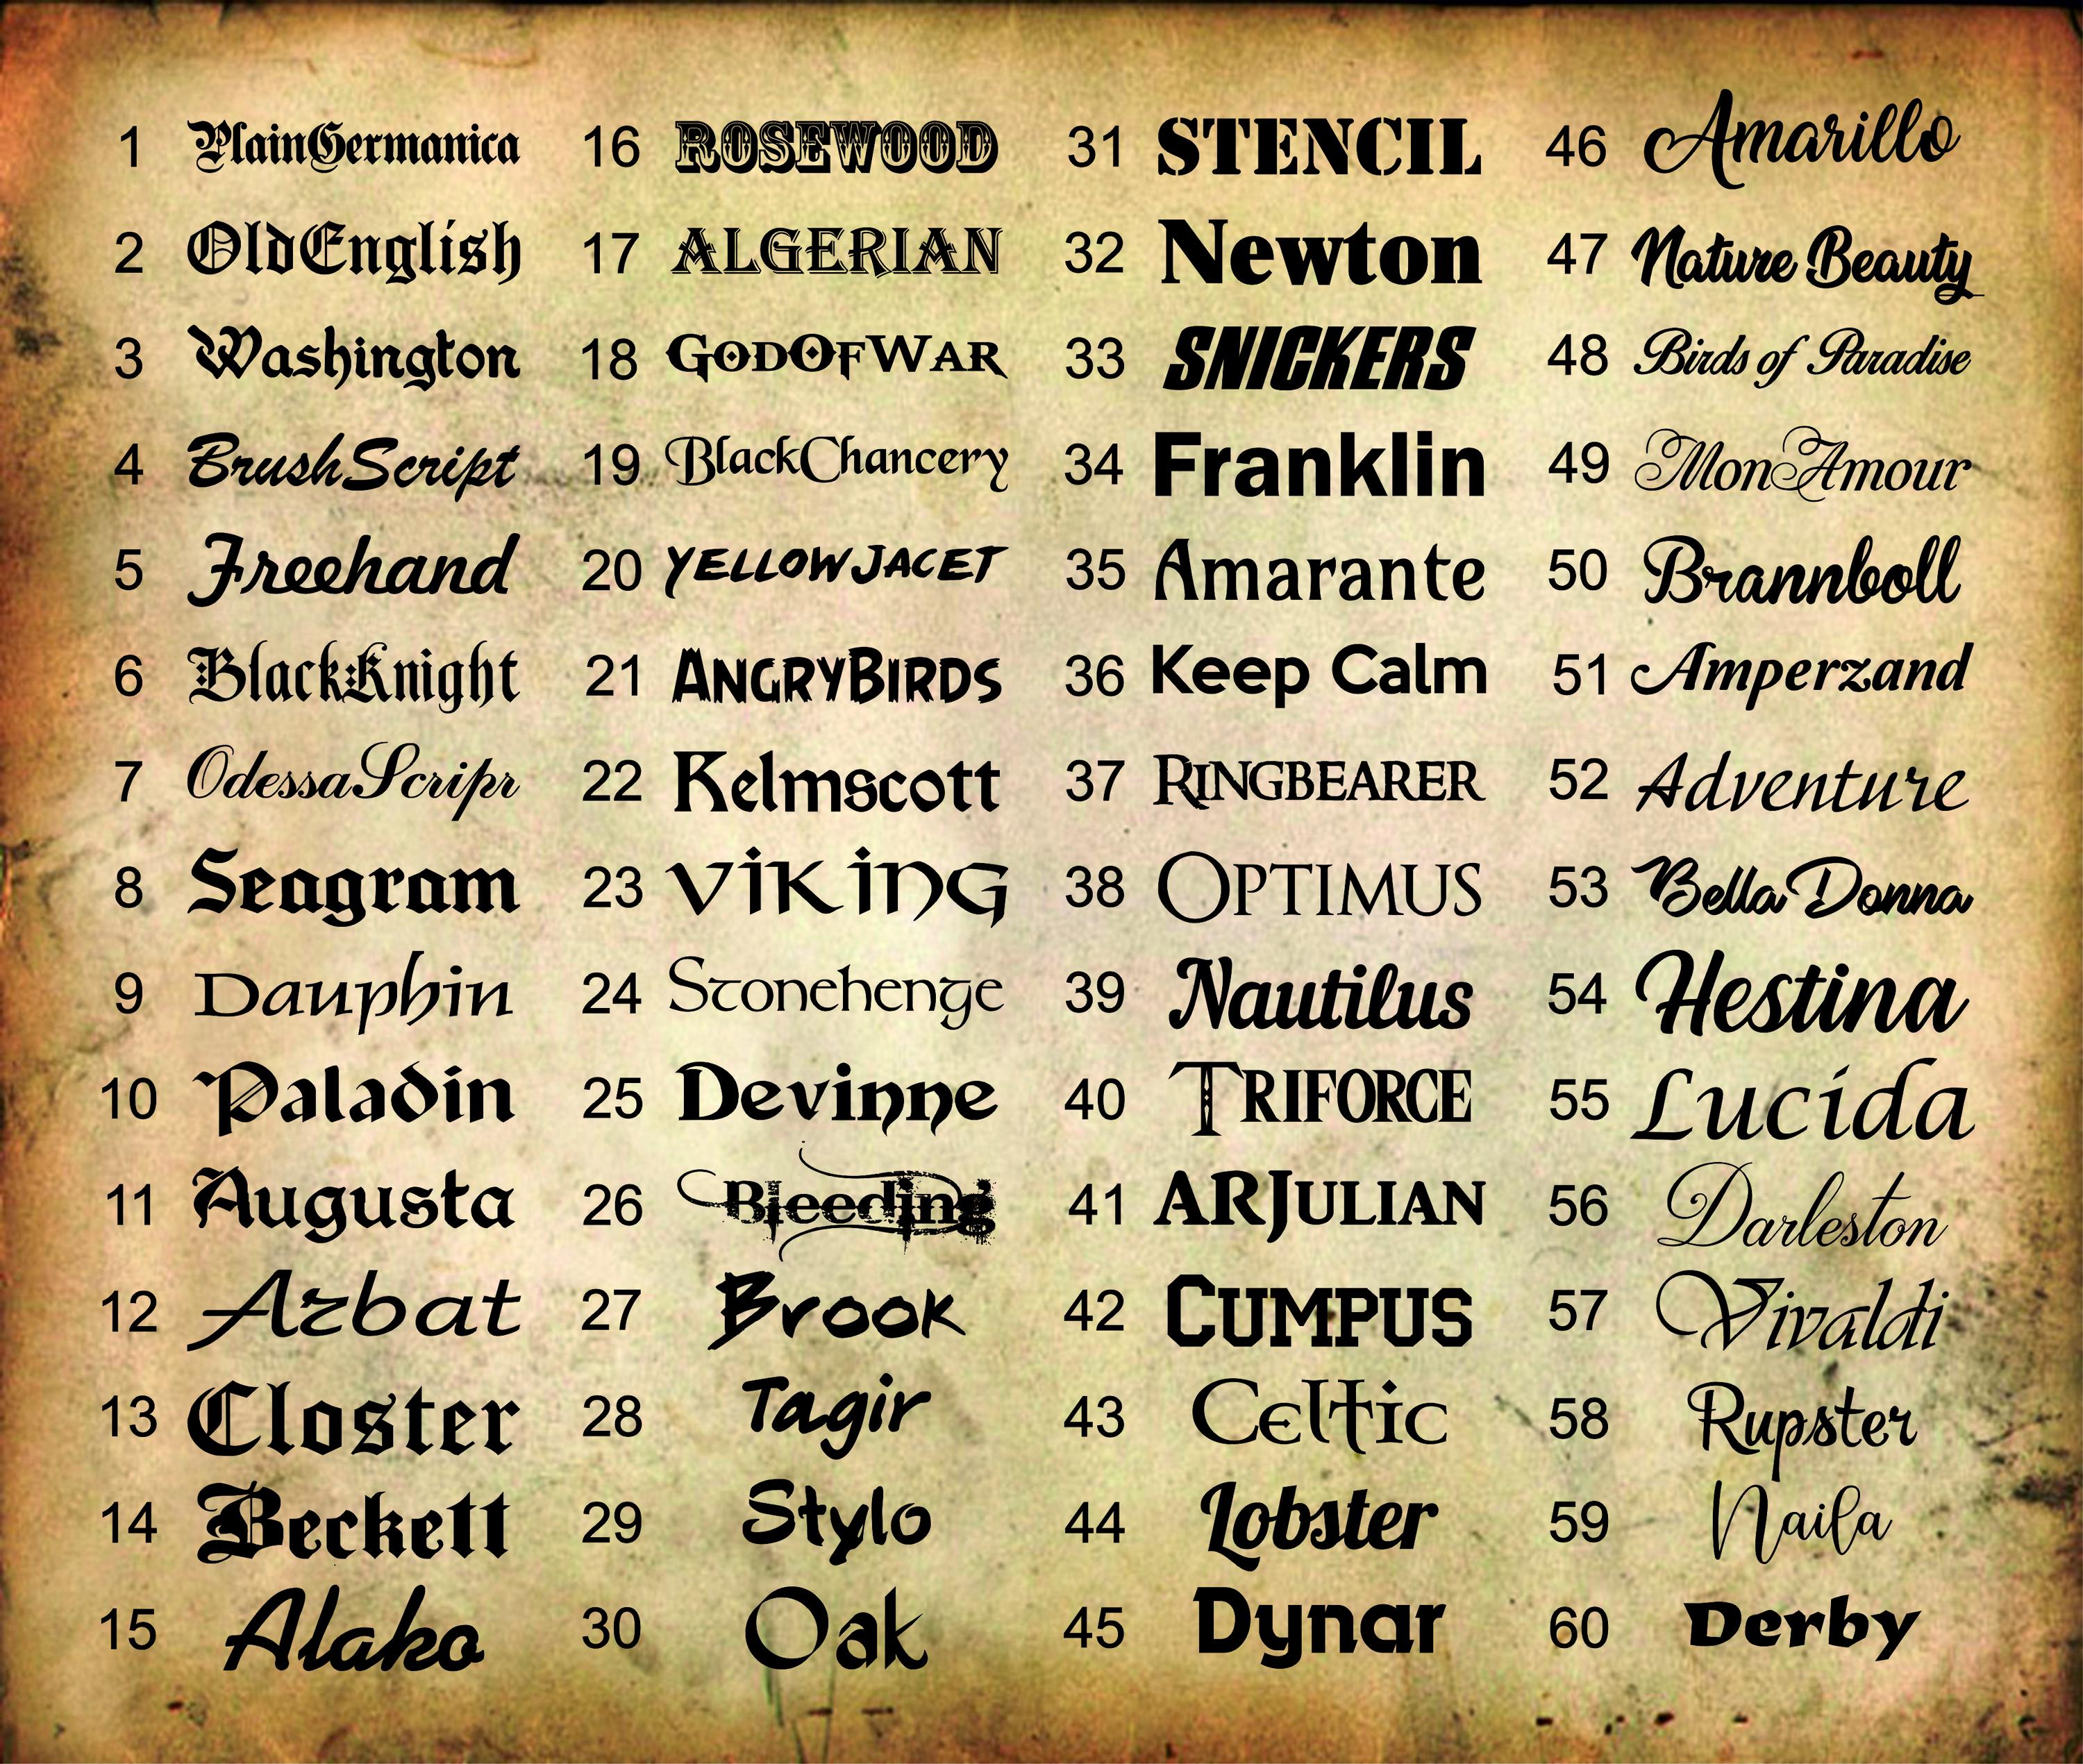 1 PlainGermanica
2 OldEnglish
3 Washington
4 BrushScript
5 Freehand
6 BlackKnight
7 OdessaScripr
8 Seagram
9 Dauphin
10 Paladin
11 Augusta
12 Arbat
13 Closter
14 Beckett
15 Alako
16 ROSEWOOD
17 ALGERIAN
18 GODOFWAR
19 BlackChancery
20 YELLOWJACET
21 ANGRYBIRDS
22 Kelmscott
23 VIKING
24 Stonehenge
25 Devinne
26 Bleeding
27 Brook
28 Tagir
29 Stylo
30 Oak
31 STENCIL
32 Newton
33 SNICKERS
34 Franklin
35 Amarante
36 Keep Calm
37 RINGBEARER
38 OPTIMUS
39 Nautilus
40 TRIFORCE
41 ARJULIAN
42 CUMPUS
43 Celtic
44 Lobster
45 Dynar
46 Amarillo
47 Nature Beauty
48 Birds of Paradise
49 MonAmour
50 Brannboll
51 Amperzand
52 Adventure
53 Bella Donna
54 Hestina
55 Lucida
56 Darleston
57 Vivaldi
58 Rupster
59 Naila
60 Derby